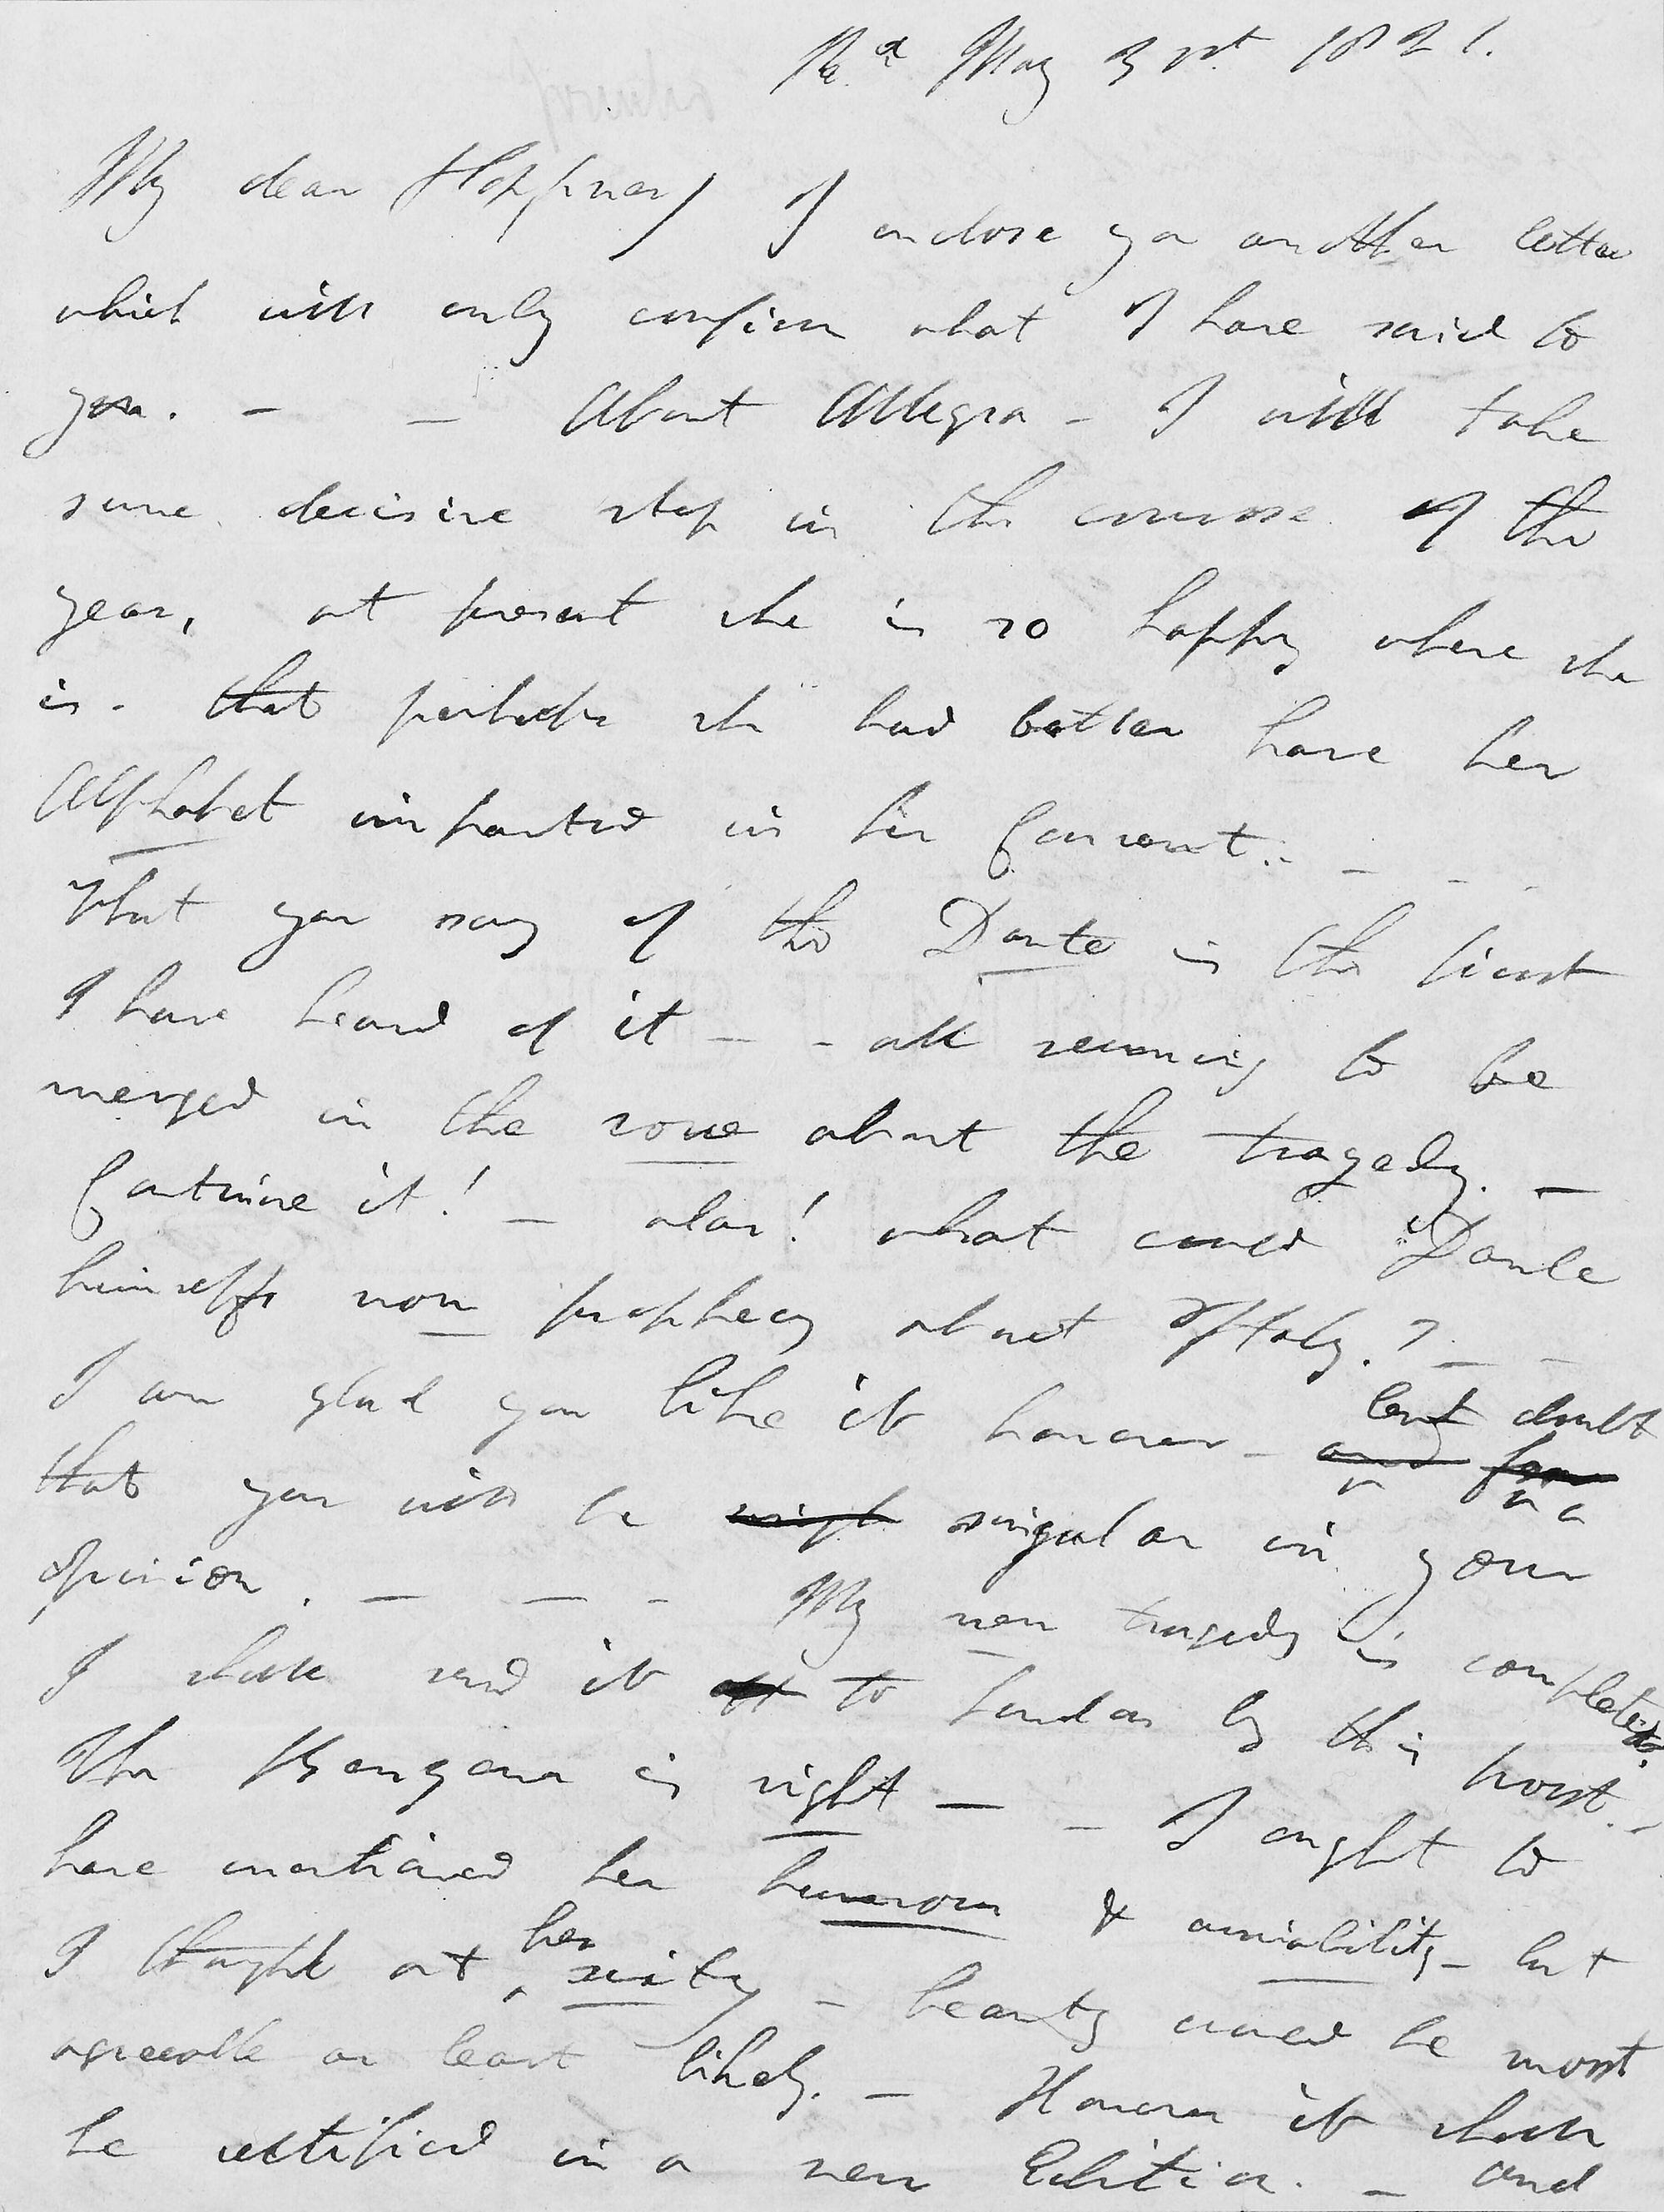 R.ª May 31st. 1821.
My dear Hoppner / I enclose you another letter
which will only confirm what I have said to
you. — — About Allegra — I will take
some decisive step in the course of the
year, at present she is so happy where she
is — that perhaps she had better have her
Alphabet imparted in her Convent. — — —
What you say of the Dante is the first
I have heard of it — — all seeming to be
merged in the rowe about the tragedy. —
Continue it! — alas! what could Dante
himself now prophecy about Italy.? — —
I am glad you like it however — but doubt
that you will be singular in your
opinion. — — — My new tragedy is completed.
I shall send it to London by this post. —
The Benzona is right — — I ought to
have mentioned her humour & amiability — but
I thought at her sixty — beauty would be most
agreeable or least likely. — However it shall
be rectified in a new Edition. — and